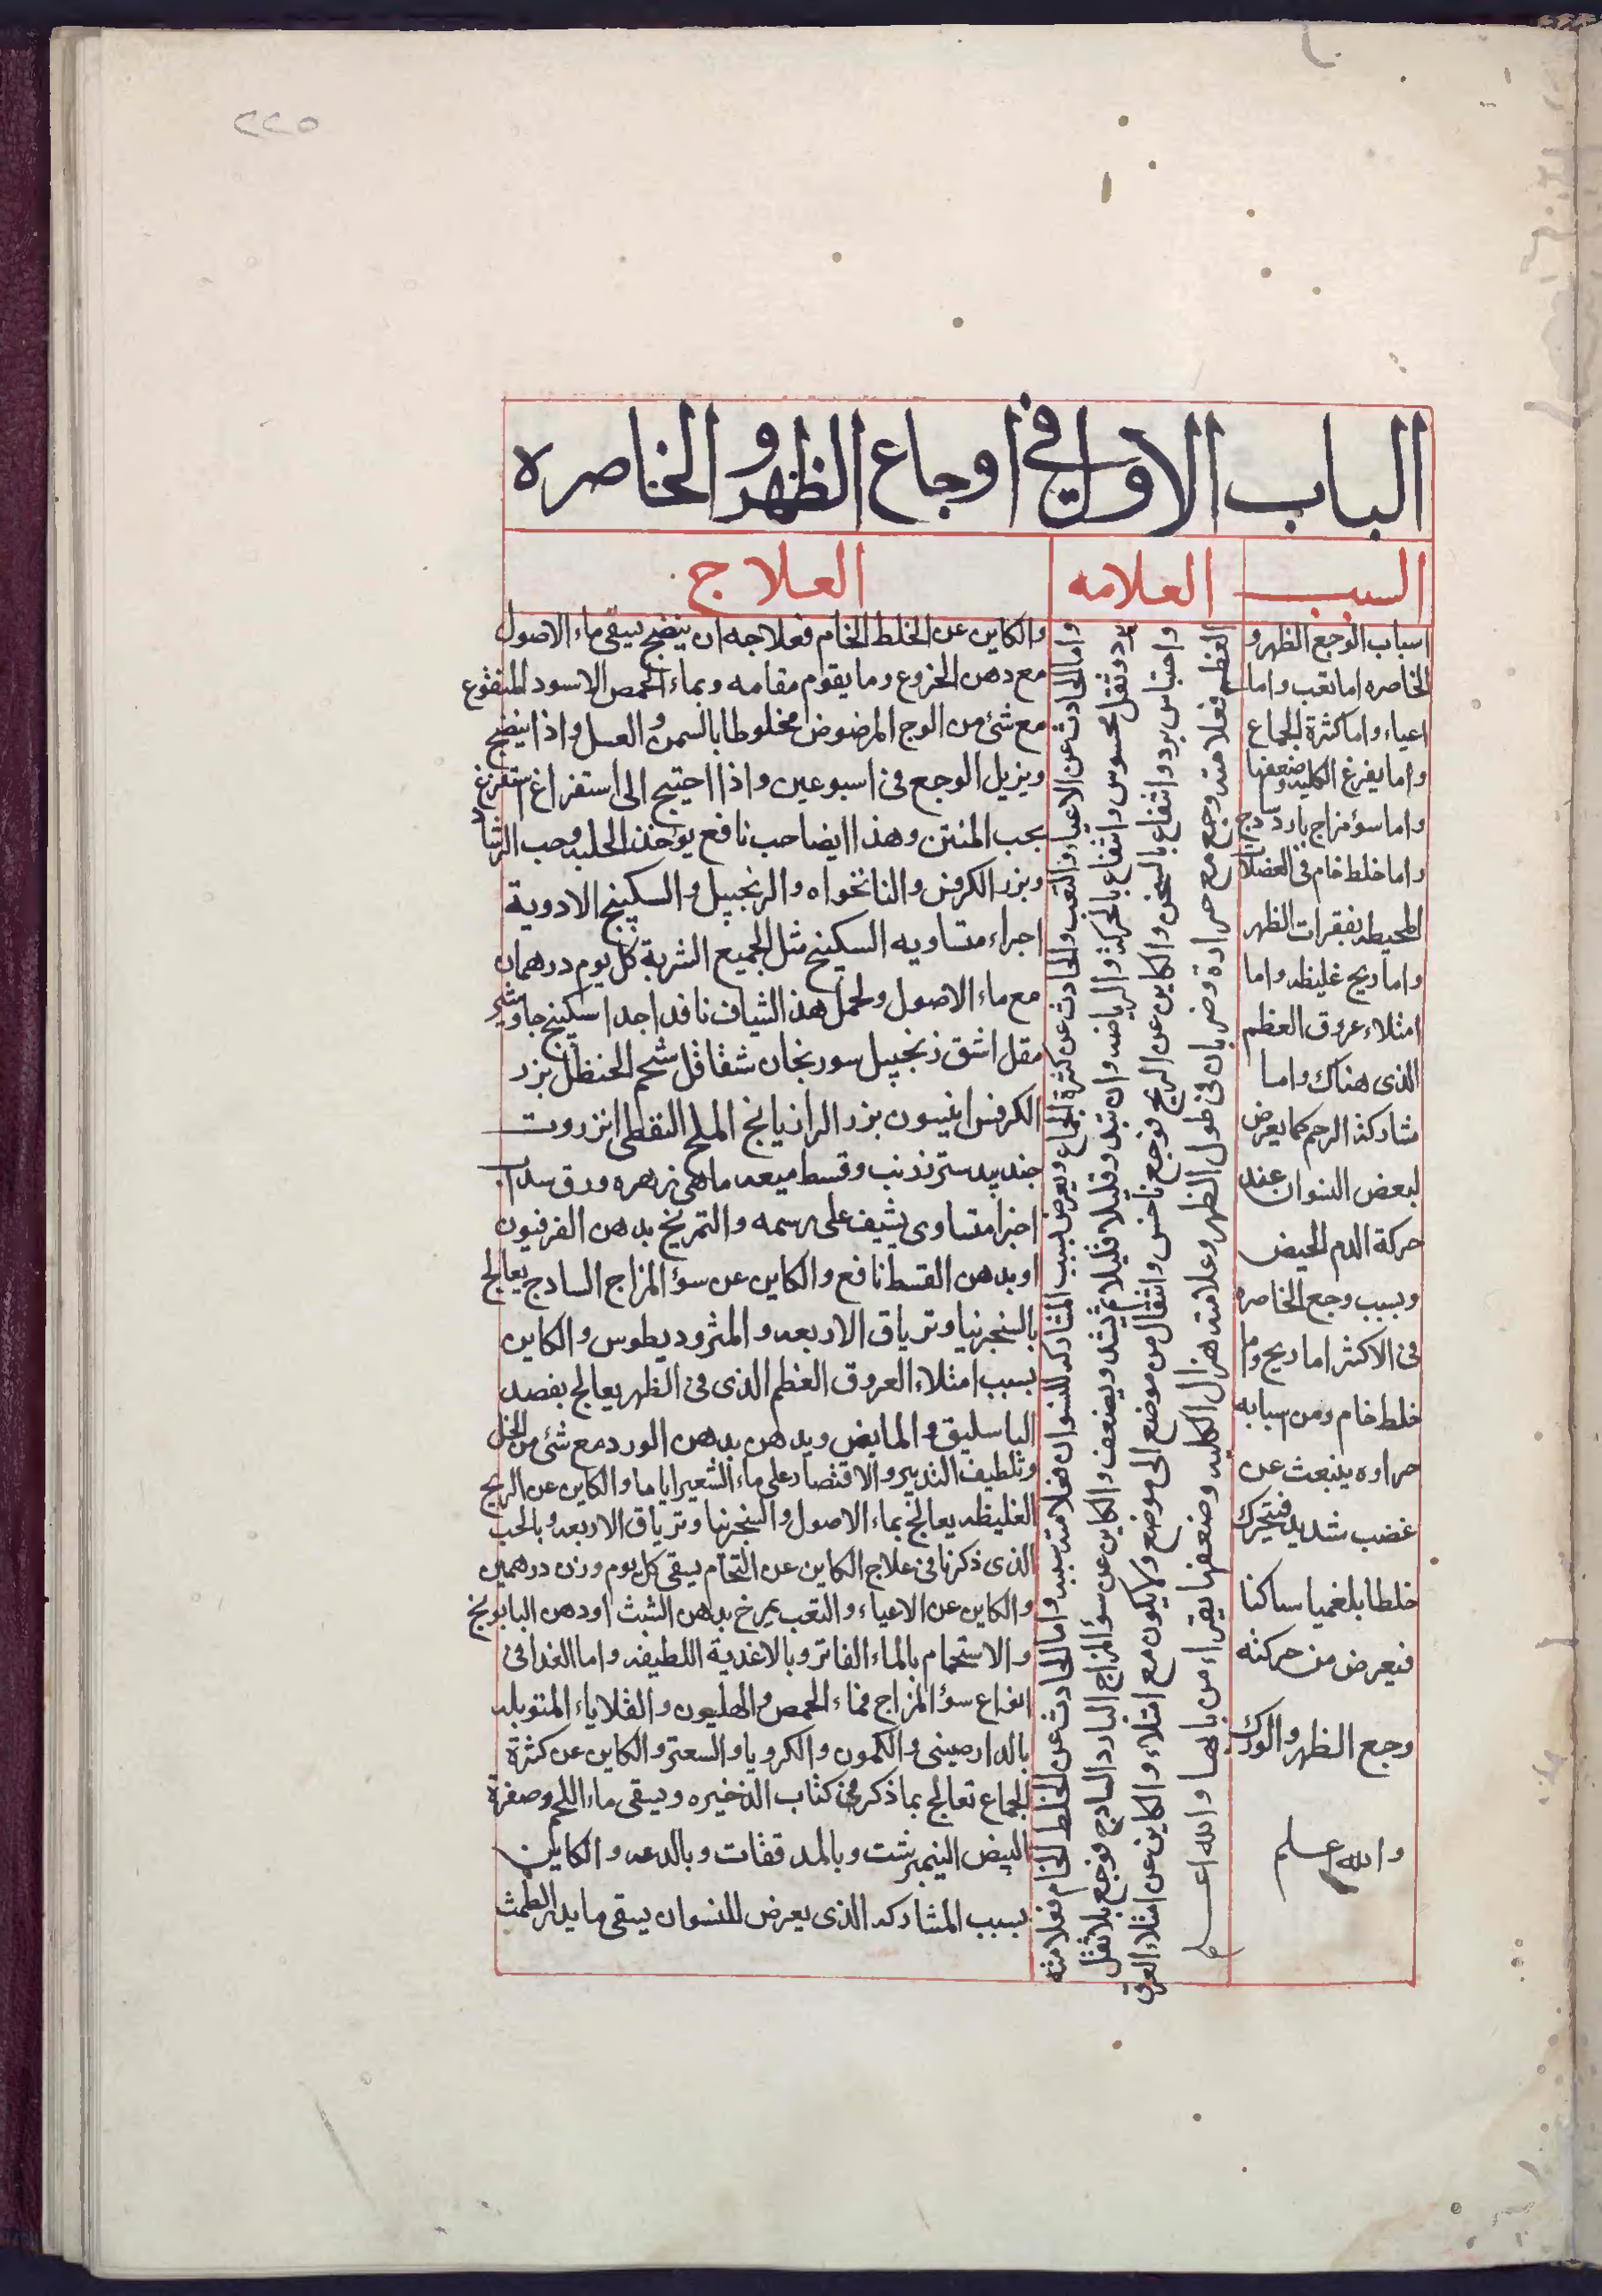 ٢٢٥
الباب الاول في اوجاع الظهر والخاصره
السبب
العلامه
العلاج
اسباب الوجع الظهر و
الخاصره اما تعب واما
اعياء واما كثرة الجماع
واما يفرغ الكليه وضعفها
واما سؤ مزاج بارد سادج
واما خلط خام فى العضلات
المحيطه بفقرات الظهر
واما ريح غليظه واما
امتلاء عروق العظم
الذى هناك واما
مشاركة الرحم كما يعرض
لبعض النسوان عند
حركة الدم الحيض
وبسبب وجع الخاصره
فى الاكثر اما ريح واما
خلط خام ومن اسبابه
حراره ينبعث عن
غضب شديد فتحرك
خلطا بلغميا ساكنا
فيعرض من حركته
وجع الظهر والورك
والله اعلم
واما الحادث عن الاعياء والتعب والحادث عن كثرة الجماع ويعرض بسبب المشاركه للنسوان فعلامته سببه واما الحادث عن الخلط الخام فعلامته
برد وثقل محسوس وانتفاع بالحركة والرياضه وان يبتدى قليلا قليلا ثم يشتد ويضعف والكاين عن سؤ المزاج البارد السادج فوجع بلا ثقل
واحتباس برد وانتفاع بالسخن والكاين عن الريح فوجع ناخس وانتقال من موضع الى موضع ولا يكون مع امتلاء والكاين عن امتلاء العرق
العظم فعلامته وجع مع حرارة وضربان فى طول الظهر وعلامته هزال الكليه وضعفها يقراء من بابها والله اعلم
والكاين عن الخلط الخام فعلاجه ان ينضج يسقى ماء الاصول
مع دهن الخروع وما يقوم مقامه وبماء الحمص الاسود المنقوع
مع شئ من الوج المرضوض مخلوطا بالسمن والعسل واذا ينضج
ويزيل الوجع فى اسبوعين واذا احتيج الى استفراغ استفرغ
بحب المنتن وهذا ايضا حب نافع يؤخذ الحلبه وحب الرشاد
وبزر الكرفس والنانخواه والزنجبيل والسكبينج الادوية
اجزاء متساويه السكبينج مثل الجميع الشربة كل يوم درهمان
مع ماء الاصول ولحمل هذ الشياف نافد اجدا سكبينج جاوشير
مقل اشق زنجبيل سورنجان شقاقل شحم الحنظل بزر
الكرفس انيسون بزر الرازيانج الملح النفطى انزروت
جندبيدستر زرنب وقسط ميعه ماهى زهره ورق سداب
اجزا متساوى يشيف على رسمه والتمريخ بدهن الفرفيون
او بدهن القسط نافع والكاين عن سؤ المزاج السادج يعالج
بالسنجرنيا وترياق الاربعه والمثروديطوس والكاين
بسبب امتلاء العروق العظم الذى فى الظهر يعالج بفصد
الباسليق والمابض ويدهن بدهن الورد مع شئ من الخل
وتلطيف التدبير والاقتصاد على ماء الشعير اياما والكاين عن الريح
الغليظه يعالج بماء الاصول والسنجرنيا وترياق الاربعه وبالحب
الذى ذكرنا فى علاج الكاين عن الخام يسقى كل يوم وزن درهمين
والكاين عن الاعياء والتعب يمرخ بدهن الشبث او دهن البابونج
والاستحمام بالماء الفاتر وبالاغدية اللطيفه واما الغدا فى
انواع سؤ المزاج فماء الحمص والهليون والقلاياء المتوبله
بالدارصينى والكمون والكرويا والسعتر والكاين عن كثرة
الجماع تعالج بما ذكر فى كتاب الذخيره ويسقى ماء اللحم وصفرة
البيض النيمبرشت وبالمدققات وبالدعه والكاين
بسبب المشاركه الذى يعرض للنسوان يسقى ما يدر الطمث